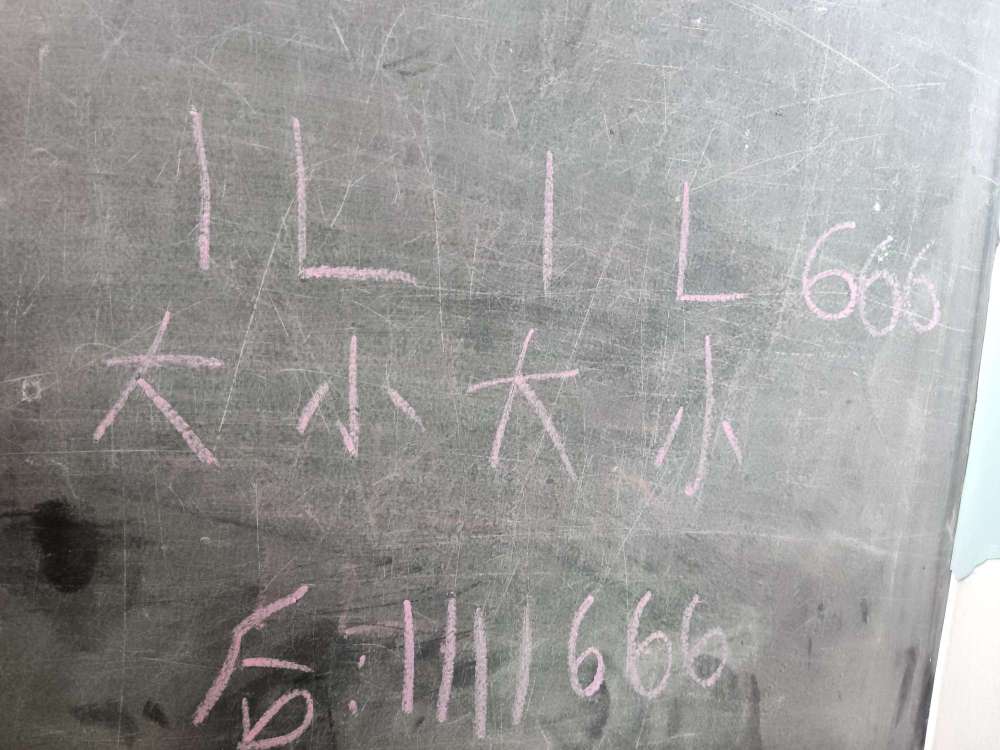 1L 1L 666
大小大小
后:1111666